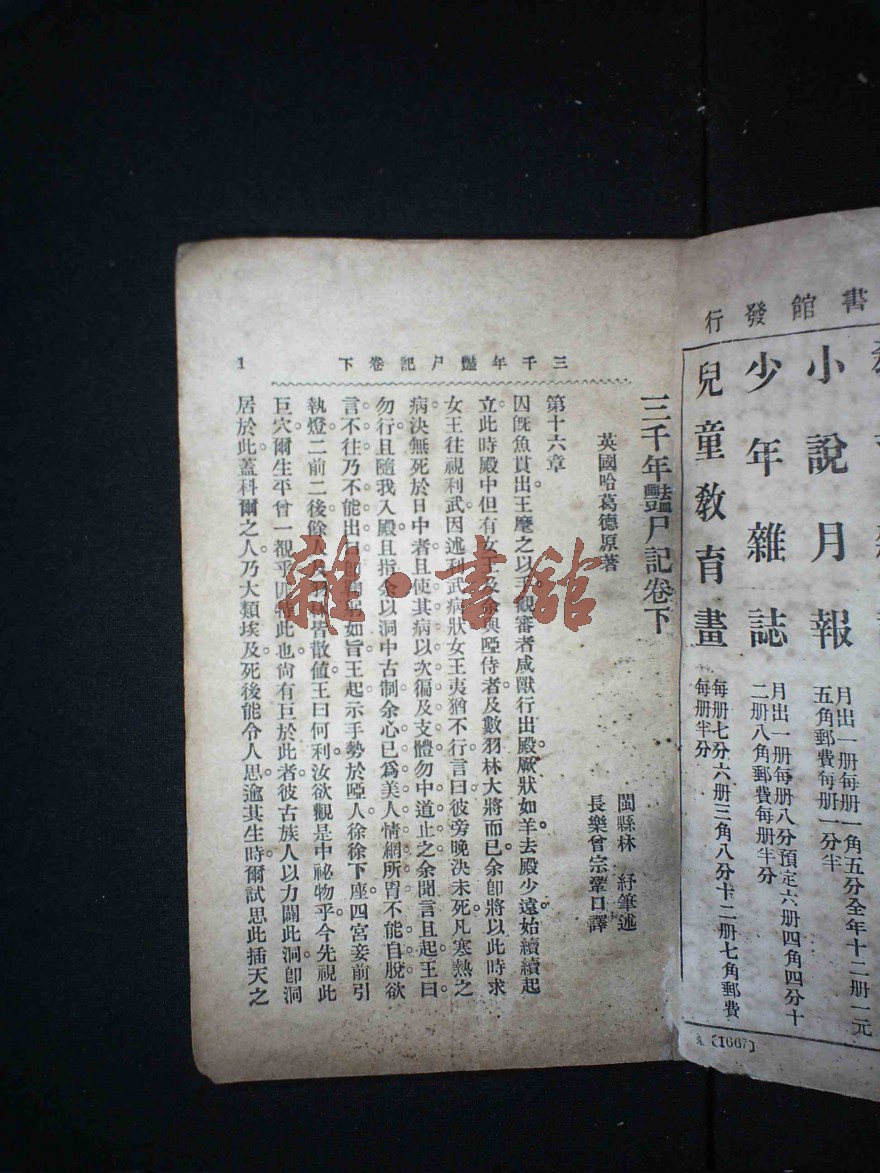 書館發行
兒童教育畫
每册七分六册三角八分十二册七角郵費
每册半分
少年雜誌
月出一册每册八分預定六册四角四分十
二册八角郵費每册半分
小說月報
月出一册每册一角五分全年十二册一元
五角郵費每册一分半
〔1667〕
三千年豔尸記卷下
1
三千年豔尸記卷下
英國哈葛德原著
閩縣林紓筆述
長樂曾宗鞏口譯
第十六章
囚旣魚貫出王麾之以手觀審者咸獸行出殿厥狀如羊去殿少遠始續續起
立此時殿中但有女王及余與啞侍者及數羽林大將而已余卽將以此時求
女王往視利武因述利武病狀女王夷猶不行言曰彼旁晚決未死凡寒熱之
病決無死於日中者且使其病以次徧及支體勿中道止之余聞言且起王曰
勿行且隨我入殿且指余以洞中古制余心已爲美人情網所罥不能自脫欲
言不往乃不能出口卽鞠躬如旨王起示手勢於啞人徐徐下座四宮妾前引
執燈二前二後餘人及羽林皆散値王曰何利汝欲觀是中祕物乎今先視此
巨穴爾生平曾一覩乎匪特此也尙有巨於此者彼古族人以力闢此洞卽洞
居於此蓋科爾之人乃大類埃及死後能令人思逾其生時爾試思此插天之
雜·書館